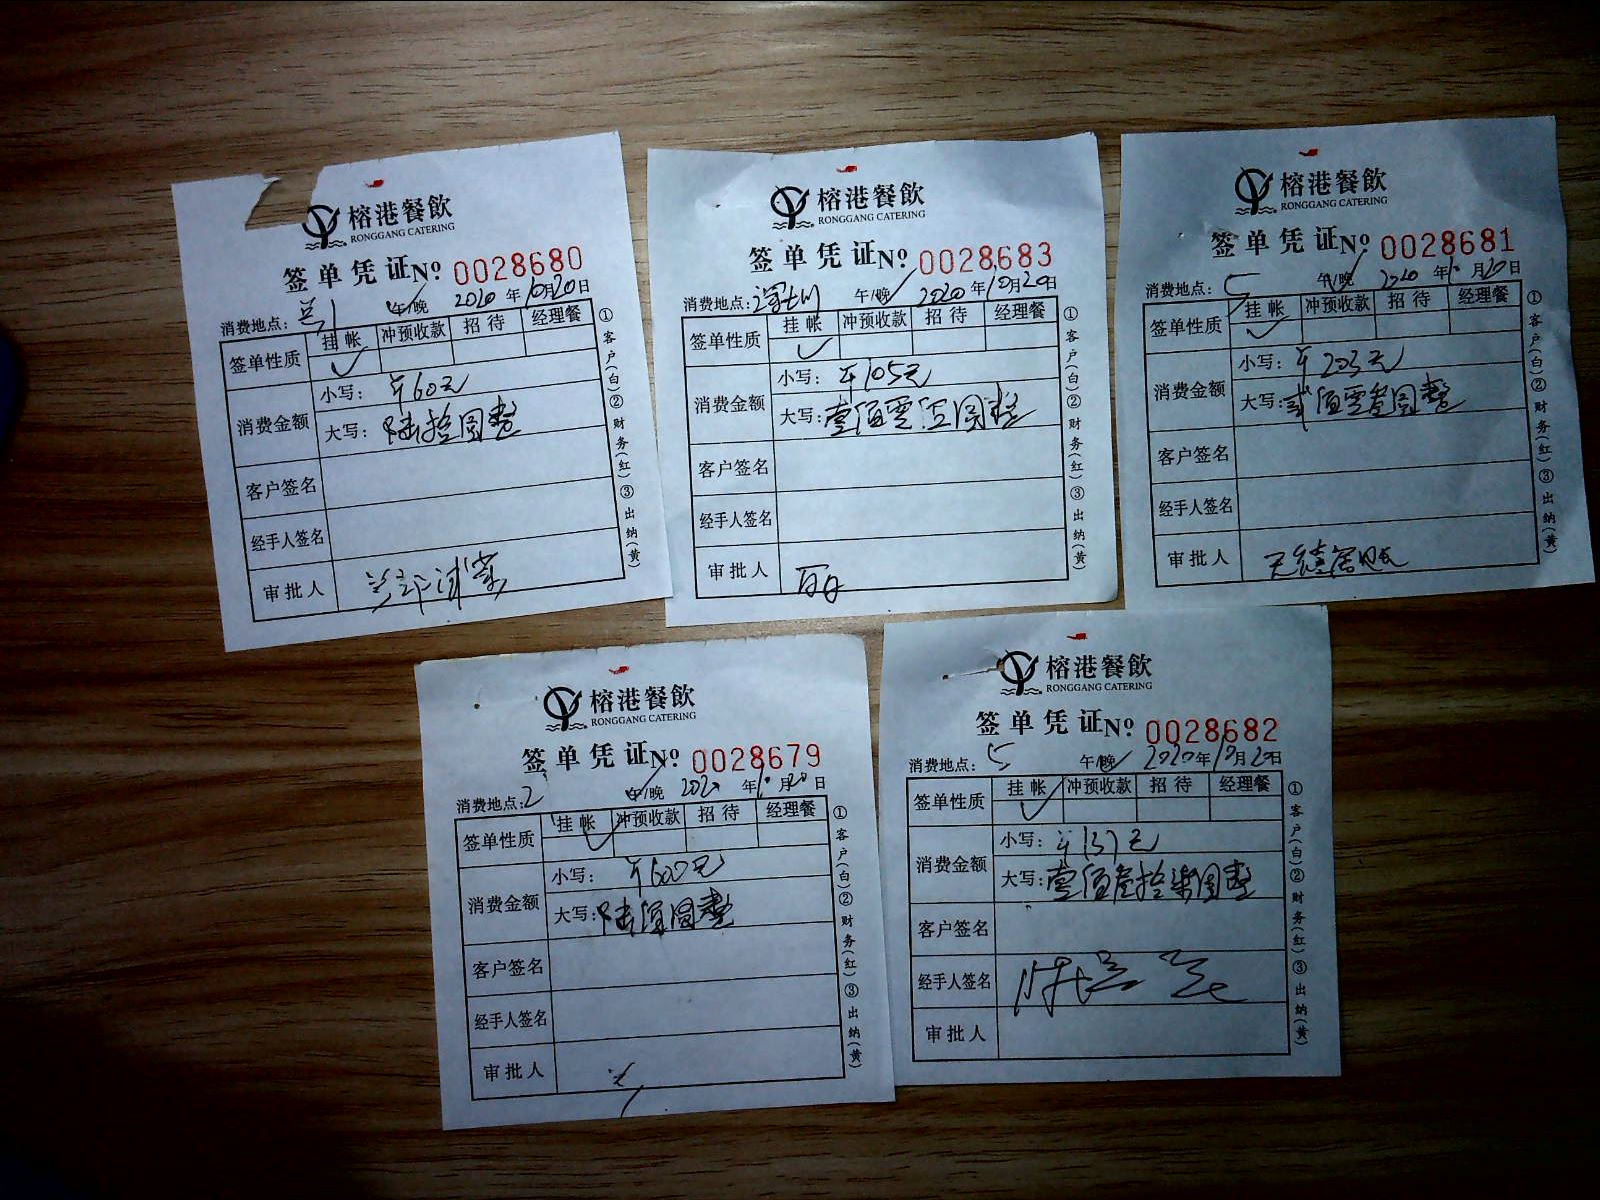 榕港餐飲
RONGGANG CATERING
签单凭证 Nº 0028680
消费地点: 午/晚 2020 年 10月20日
签单性质 挂帐 冲预收款 招待 经理餐
✓
消费金额 小写: ¥60元
大写: 陆拾圆整
客户签名
经手人签名
审批人
①客户(白)②财务(红)③出纳(黄)
榕港餐飲
RONGGANG CATERING
签单凭证 Nº 0028683
消费地点: 午/晚 2020 年 10月20日
签单性质 挂帐 冲预收款 招待 经理餐
✓
消费金额 小写: ¥105元
大写: 壹佰零伍圆整
客户签名
经手人签名
审批人
①客户(白)②财务(红)③出纳(黄)
榕港餐飲
RONGGANG CATERING
签单凭证 Nº 0028681
消费地点: 午/晚 2020 年 10月20日
签单性质 挂帐 冲预收款 招待 经理餐
✓
消费金额 小写: ¥203元
大写: 贰佰零叁圆整
客户签名
经手人签名
审批人
①客户(白)②财务(红)③出纳(黄)
榕港餐飲
RONGGANG CATERING
签单凭证 Nº 0028679
消费地点: 2 午/晚 2020 年 10月20日
签单性质 挂帐 冲预收款 招待 经理餐
✓
消费金额 小写: ¥600元
大写: 陆佰圆整
客户签名
经手人签名
审批人
①客户(白)②财务(红)③出纳(黄)
榕港餐飲
RONGGANG CATERING
签单凭证 Nº 0028682
消费地点: 午/晚 2020年10月20日
签单性质 挂帐 冲预收款 招待 经理餐
✓
消费金额 小写: ¥137元
大写: 壹佰叁拾柒圆整
客户签名
经手人签名
审批人
①客户(白)②财务(红)③出纳(黄)